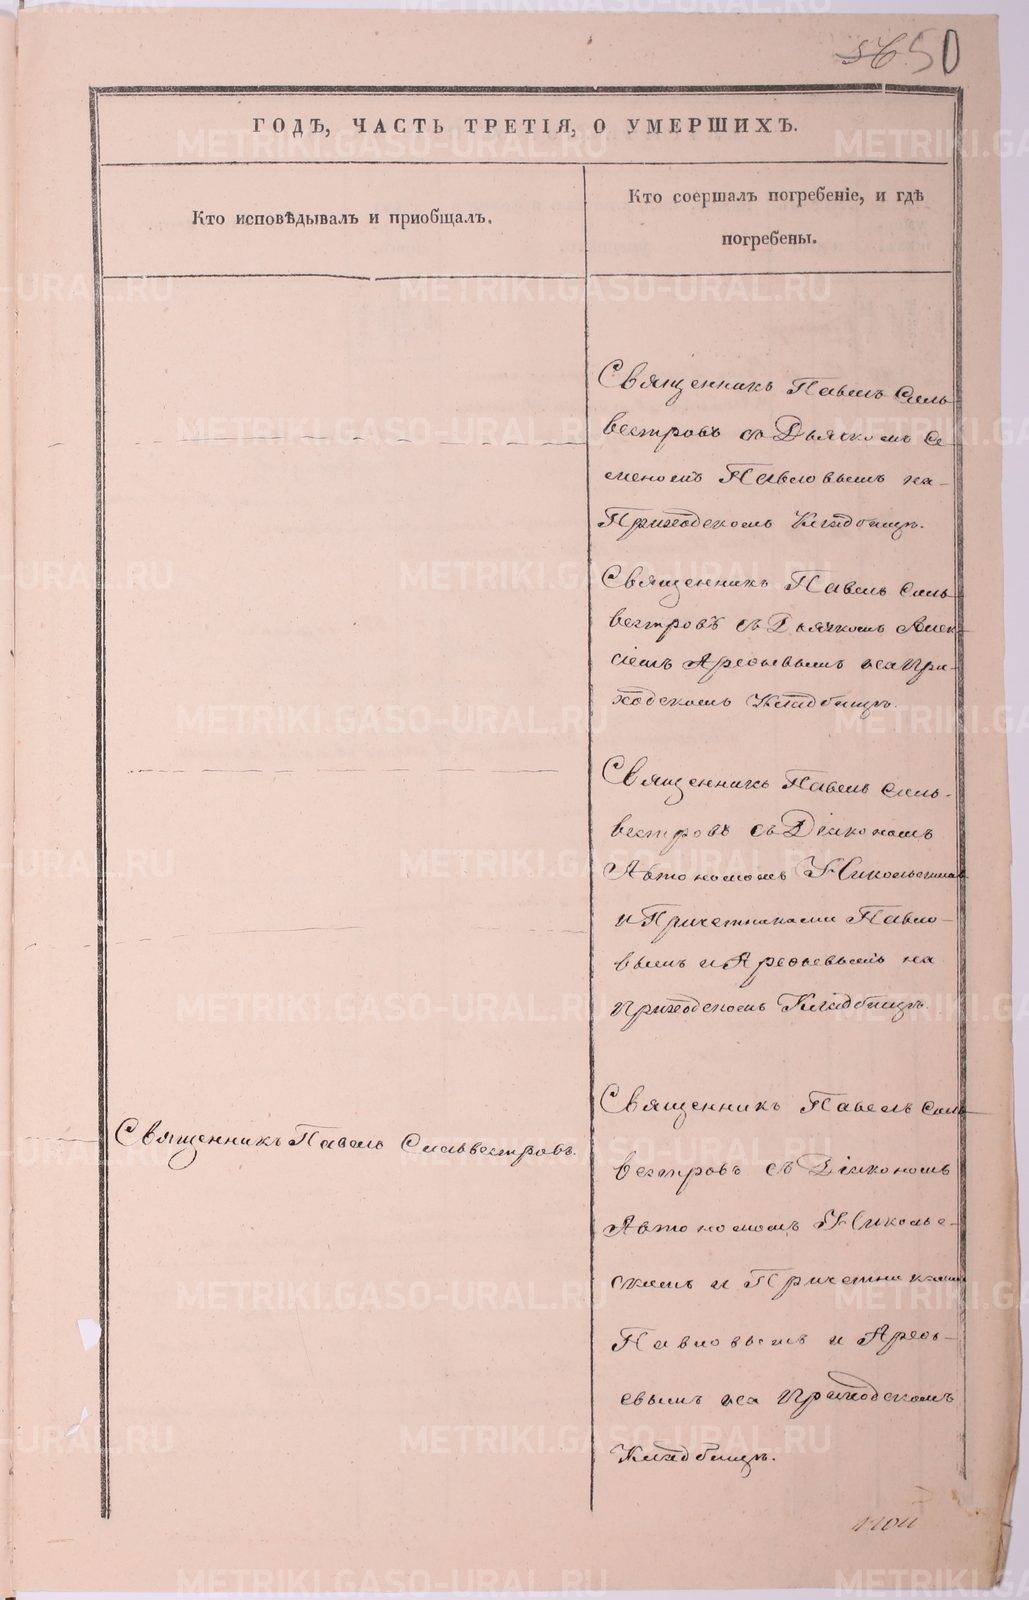 50
ГОДЪ, ЧАСТЬ ТРЕТІЯ, О УМЕРШИХЪ.
Кто исповѣдывалъ и приобщалъ.
Кто соершалъ погребеніе, и гдѣ
погребены.
Священникъ Павелъ Силь
вестровъ съ Дьячкомъ Се
меномъ Павловымъ на
Приходскомъ Кладбищѣ.
Священникъ Павелъ Силь
вестровъ съ Дьячкомъ Алек
сіемъ Арефьевымъ на При-
ходскомъ Кладбищѣ.
Священникъ Павелъ Силь-
вестровъ съ Діакономъ
Автономомъ Никольскимъ
и Причетниками Павло-
вымъ и Арефьевымъ на
Приходскомъ Кладбищѣ.
Священникъ Павелъ Сильвестровъ.
Священникъ Павелъ Силь
вестровъ съ Діакономъ
Автономомъ Никольс-
кимъ и Причетниками
Павловымъ и Арефь-
евымъ на Приходскомъ
Кладбищѣ.
METRIKI.GASO-URAL.RU